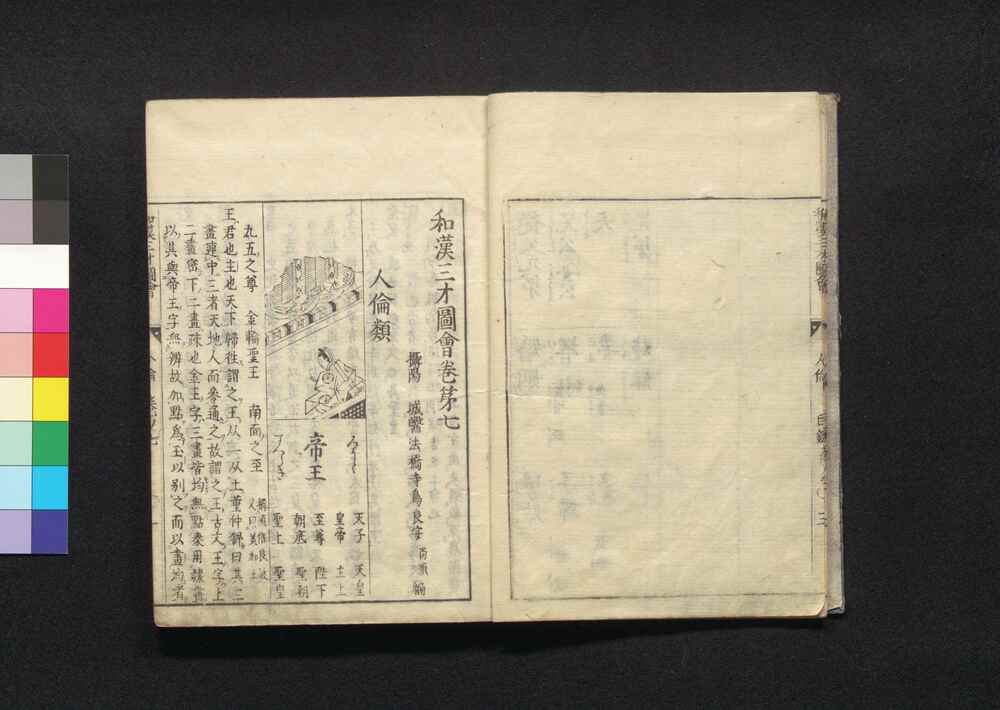 和漢三才圖會
人倫
目録
和漢三才圖會卷第七
攝陽 城醫法橋寺島良安尚順編
人倫類
帝王
天子 天皇
皇帝 主上
至尊 陛下
朝廷 聖朝
聖上 聖皇
九五之尊 金輪聖王 南面之至
王君也主也天下歸往謂之王从一从土董仲舒曰其三
畫連中三者天地人而參通之故謂之王古文王字上
二畫密下二畫疎也金王字三畫皆均無點秦用隸書
以其與帝王字無辨故加點爲玉以別之而以畫均者
和漢三才圖會
人倫
卷ノ七